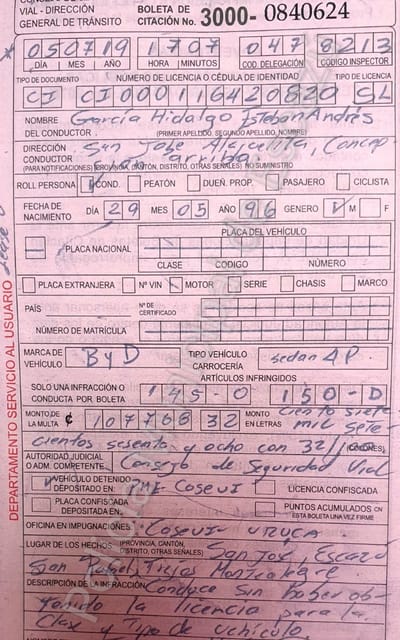 VIAL - DIRECCIÓN BOLETA DE
GENERAL DE TRÁNSITO CITACIÓN No. 3000- 0840624
050719 1707 047 8213
DÍA MES AÑO HORA MINUTOS COD. DELEGACIÓN CÓDIGO INSPECTOR
TIPO DE DOCUMENTO NÚMERO DE LICENCIA O CÉDULA DE IDENTIDAD TIPO DE LICENCIA
CI CI000116420820 SL
NOMBRE García Hidalgo Esteban Andrés
DEL CONDUCTOR (PRIMER APELLIDO, SEGUNDO APELLIDO, NOMBRE)
DIRECCIÓN San José Alajuelita, Concep-
CONDUCTOR arriba.
(PARA NOTIFICACIONES) (PROVINCIA, CANTÓN, DISTRITO, OTRAS SEÑALES) NO SUMINISTRO
ROLL PERSONA COND. PEATÓN DUEÑ. PROP. PASAJERO CICLISTA
FECHA DE NACIMIENTO DÍA 29 MES 05 AÑO 96 GENERO M F
PLACA DEL VEHÍCULO
PLACA NACIONAL
CLASE CODIGO NÚMERO
PLACA EXTRANJERA Nº VIN MOTOR SERIE CHASIS MARCO
PAÍS Nº DE CERTIFICADO
NÚMERO DE MATRÍCULA
MARCA DE VEHÍCULO ByD TIPO VEHÍCULO CARROCERÍA sedan 4P.
ARTÍCULOS INFRINGIDOS
SOLO UNA INFRACCIÓN O CONDUCTA POR BOLETA 145-0 150-D
MONTO DE LA MULTA ¢ 107768 32 MONTO EN LETRAS Ciento siete
mil sete-
cientos sesenta y ocho con 32/ (COLONES)
AUTORIDAD JUDICIAL O ADM. COMPETENTE Consejo de Seguridad Vial
VEHÍCULO DETENIDO DEPOSITADO EN Cosevi LICENCIA CONFISCADA
PLACA CONFISCADA DEPOSITADA EN PUNTOS ACUMULADOS CON ESTA BOLETA UNA VEZ FIRME
OFICINA EN IMPUGNACIONES Cosevi URUCA
LUGAR DE LOS HECHOS (PROVINCIA, CANTÓN, DISTRITO, OTRAS SEÑALES) San José, Escazú
San Rafael, Trejos Montealegre
DESCRIPCIÓN DE LA INFRACCIÓN Conduce sin haber ob-
tenido la licencia para la
Clas y Tipo de vehículo
DEPARTAMENTO SERVICIO AL USUARIO